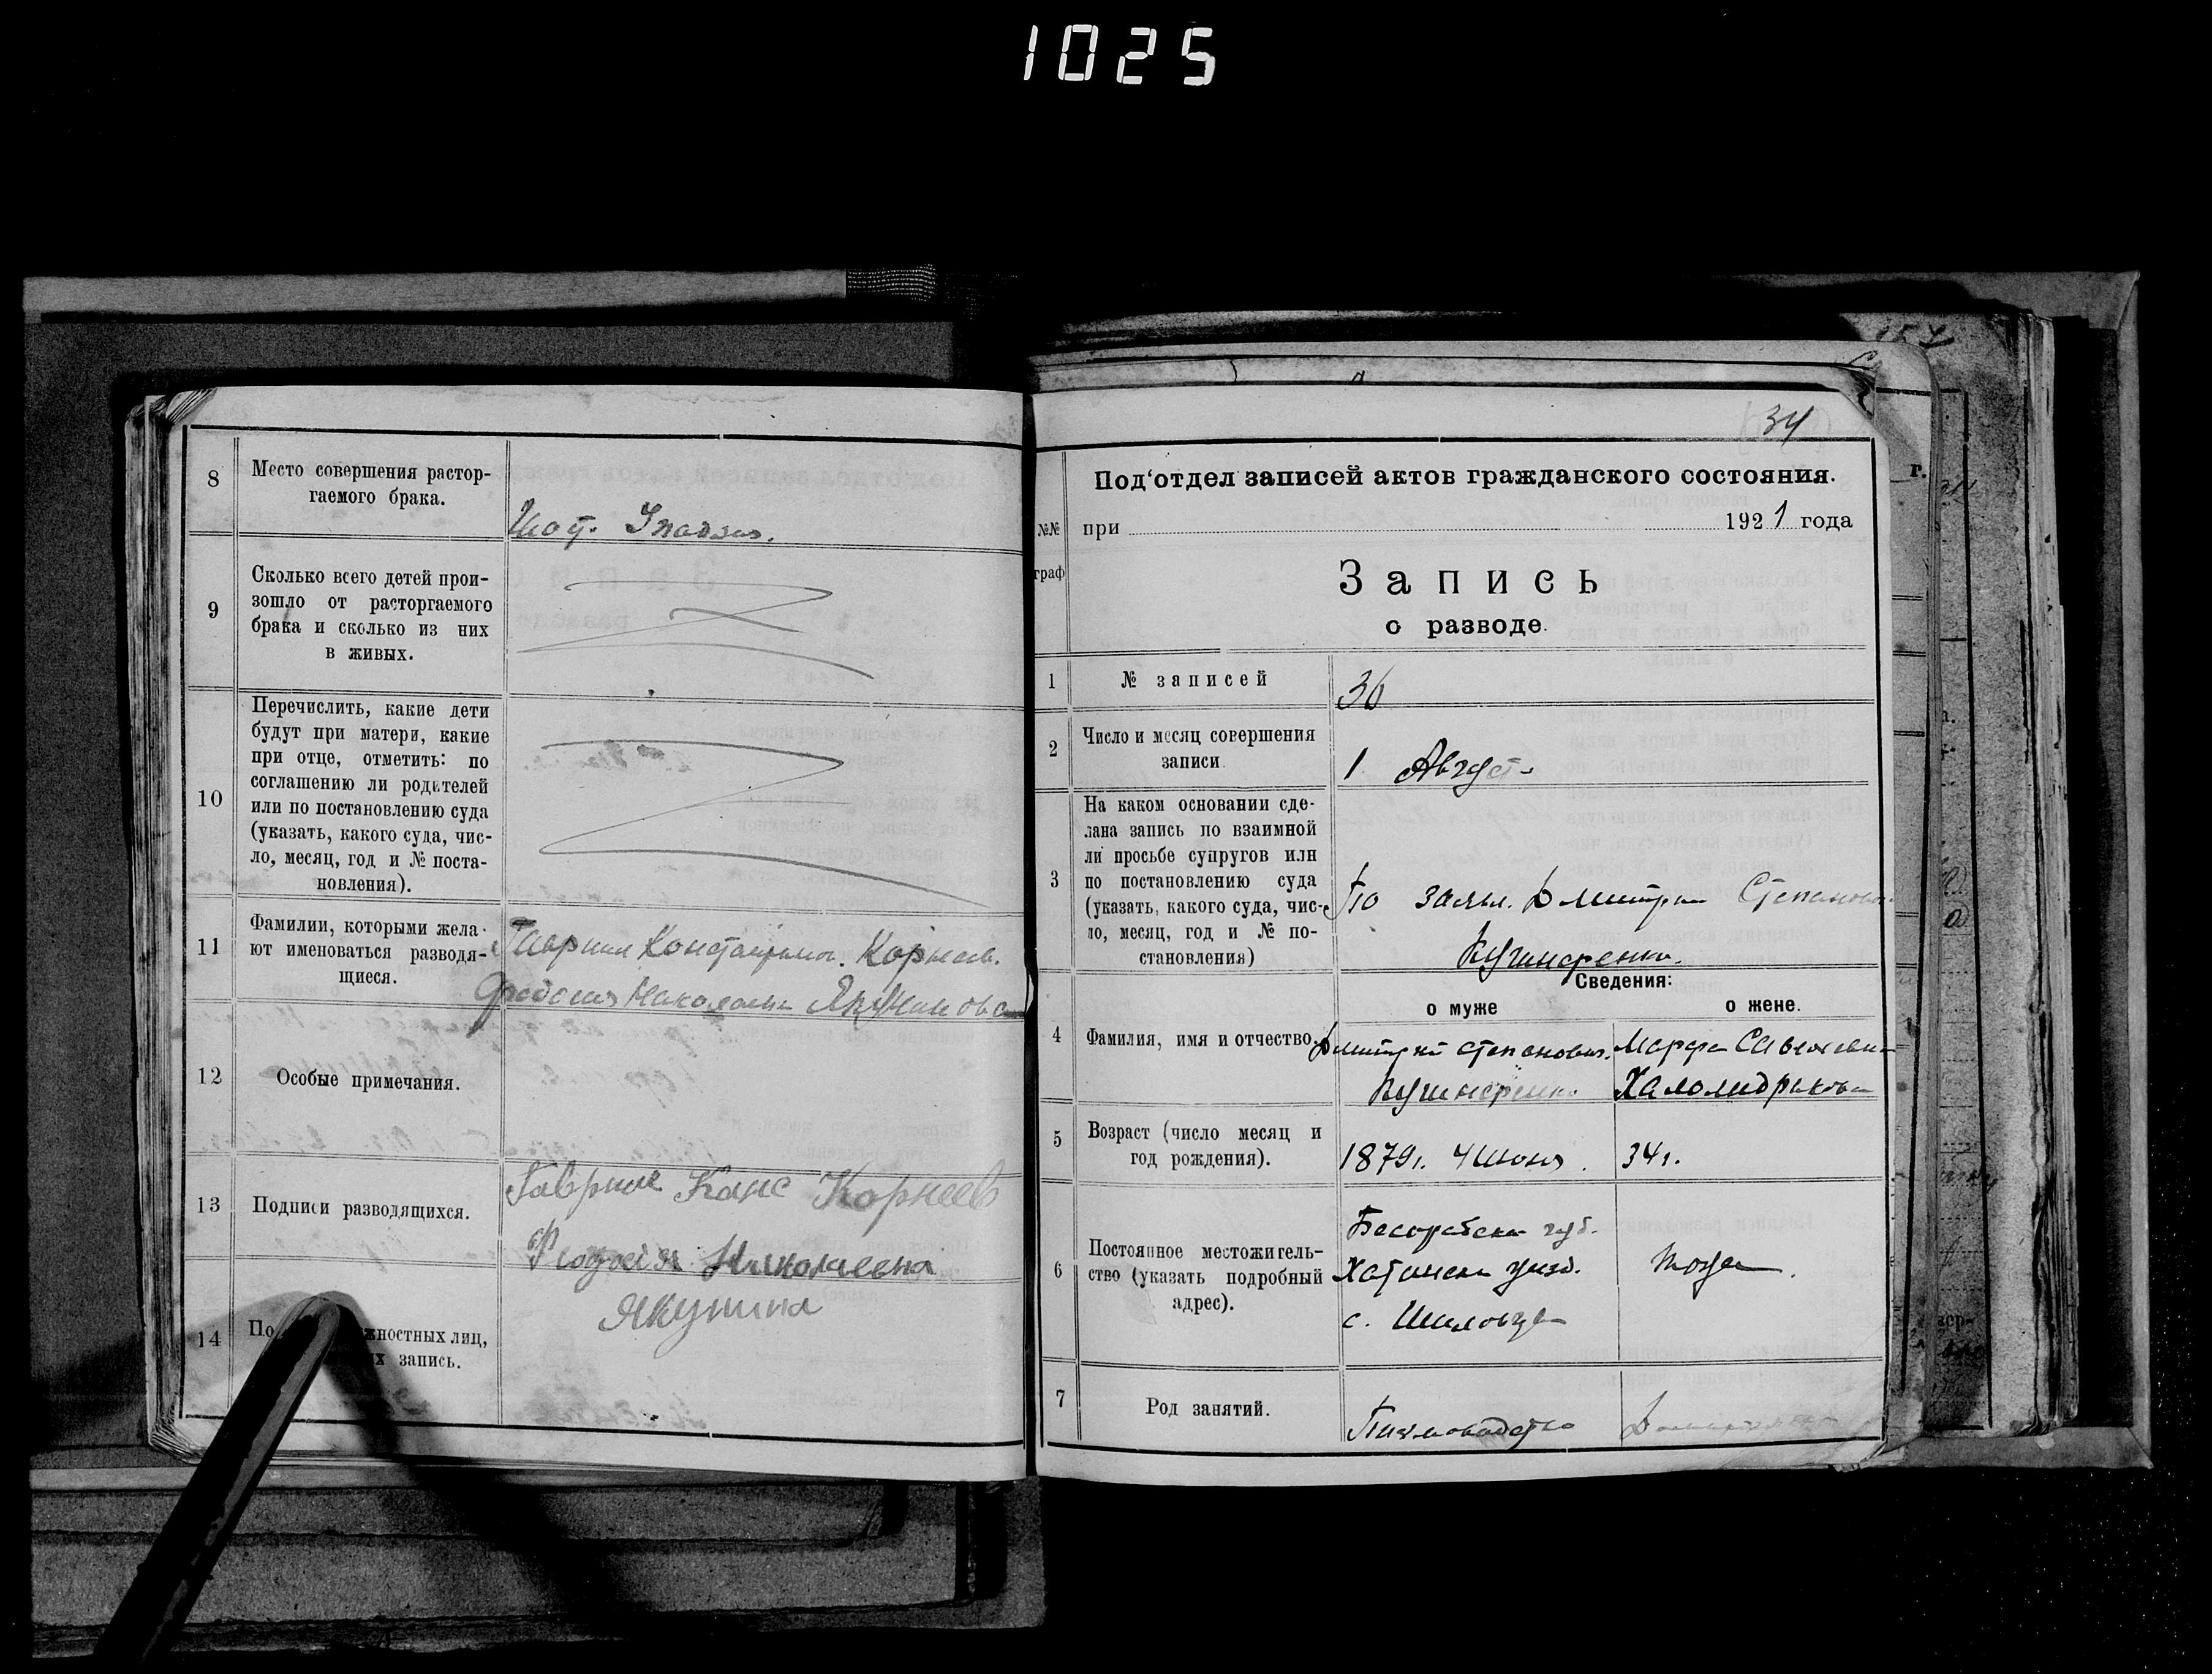 1025
8
Место совершения растор-
гаемого брака.
9
Сколько всего детей прои-
зошло от расторгаемого
брака и сколько из них
в живых.
10
Перечислить, какие дети
будут при матери, какие
при отце, отметить: по
соглашению ли родителей
или по постановлению суда
(указать, какого суда, чис-
ло, месяц, год и № поста-
новления).
11
Фамилии, которыми жела-
ют именоваться разводя-
щиеся.
Гавриил Константинов. Корнеев.
Феодосия Николаевна
12
Особые примечания.
13
Подписи разводящихся.
Гавриил Конс Корнеев
Феодосия Николаевна
Якунина
14
По жностных лиц,
х запись.
34
Под‘отдел записей актов гражданского состояния.
№№
граф
при 1921 года
Запись
о разводе.
1
№ записей
36
2
Число и месяц совершения
записи.
1 Август
3
На каком основании сде-
лана запись по взаимной
ли просьбе супругов или
по постановлению суда
(указать, какого суда, чис-
ло, месяц, год и № по-
становления)
По заявл. Дмитрия Степанова
Кушнеренко.
Сведения:
о муже
о жене.
4
Фамилия, имя и отчество.
Дмитрий Степанович.
Кушнеренко.
Марфа
5
Возраст (число месяц и
год рождения).
1879г. 4 Июня.
34г.
6
Постоянное местожитель-
ство (указать подробный
адрес).
Бесарабскы губ.
Хотински уезд.
с.
7
Род занятий.